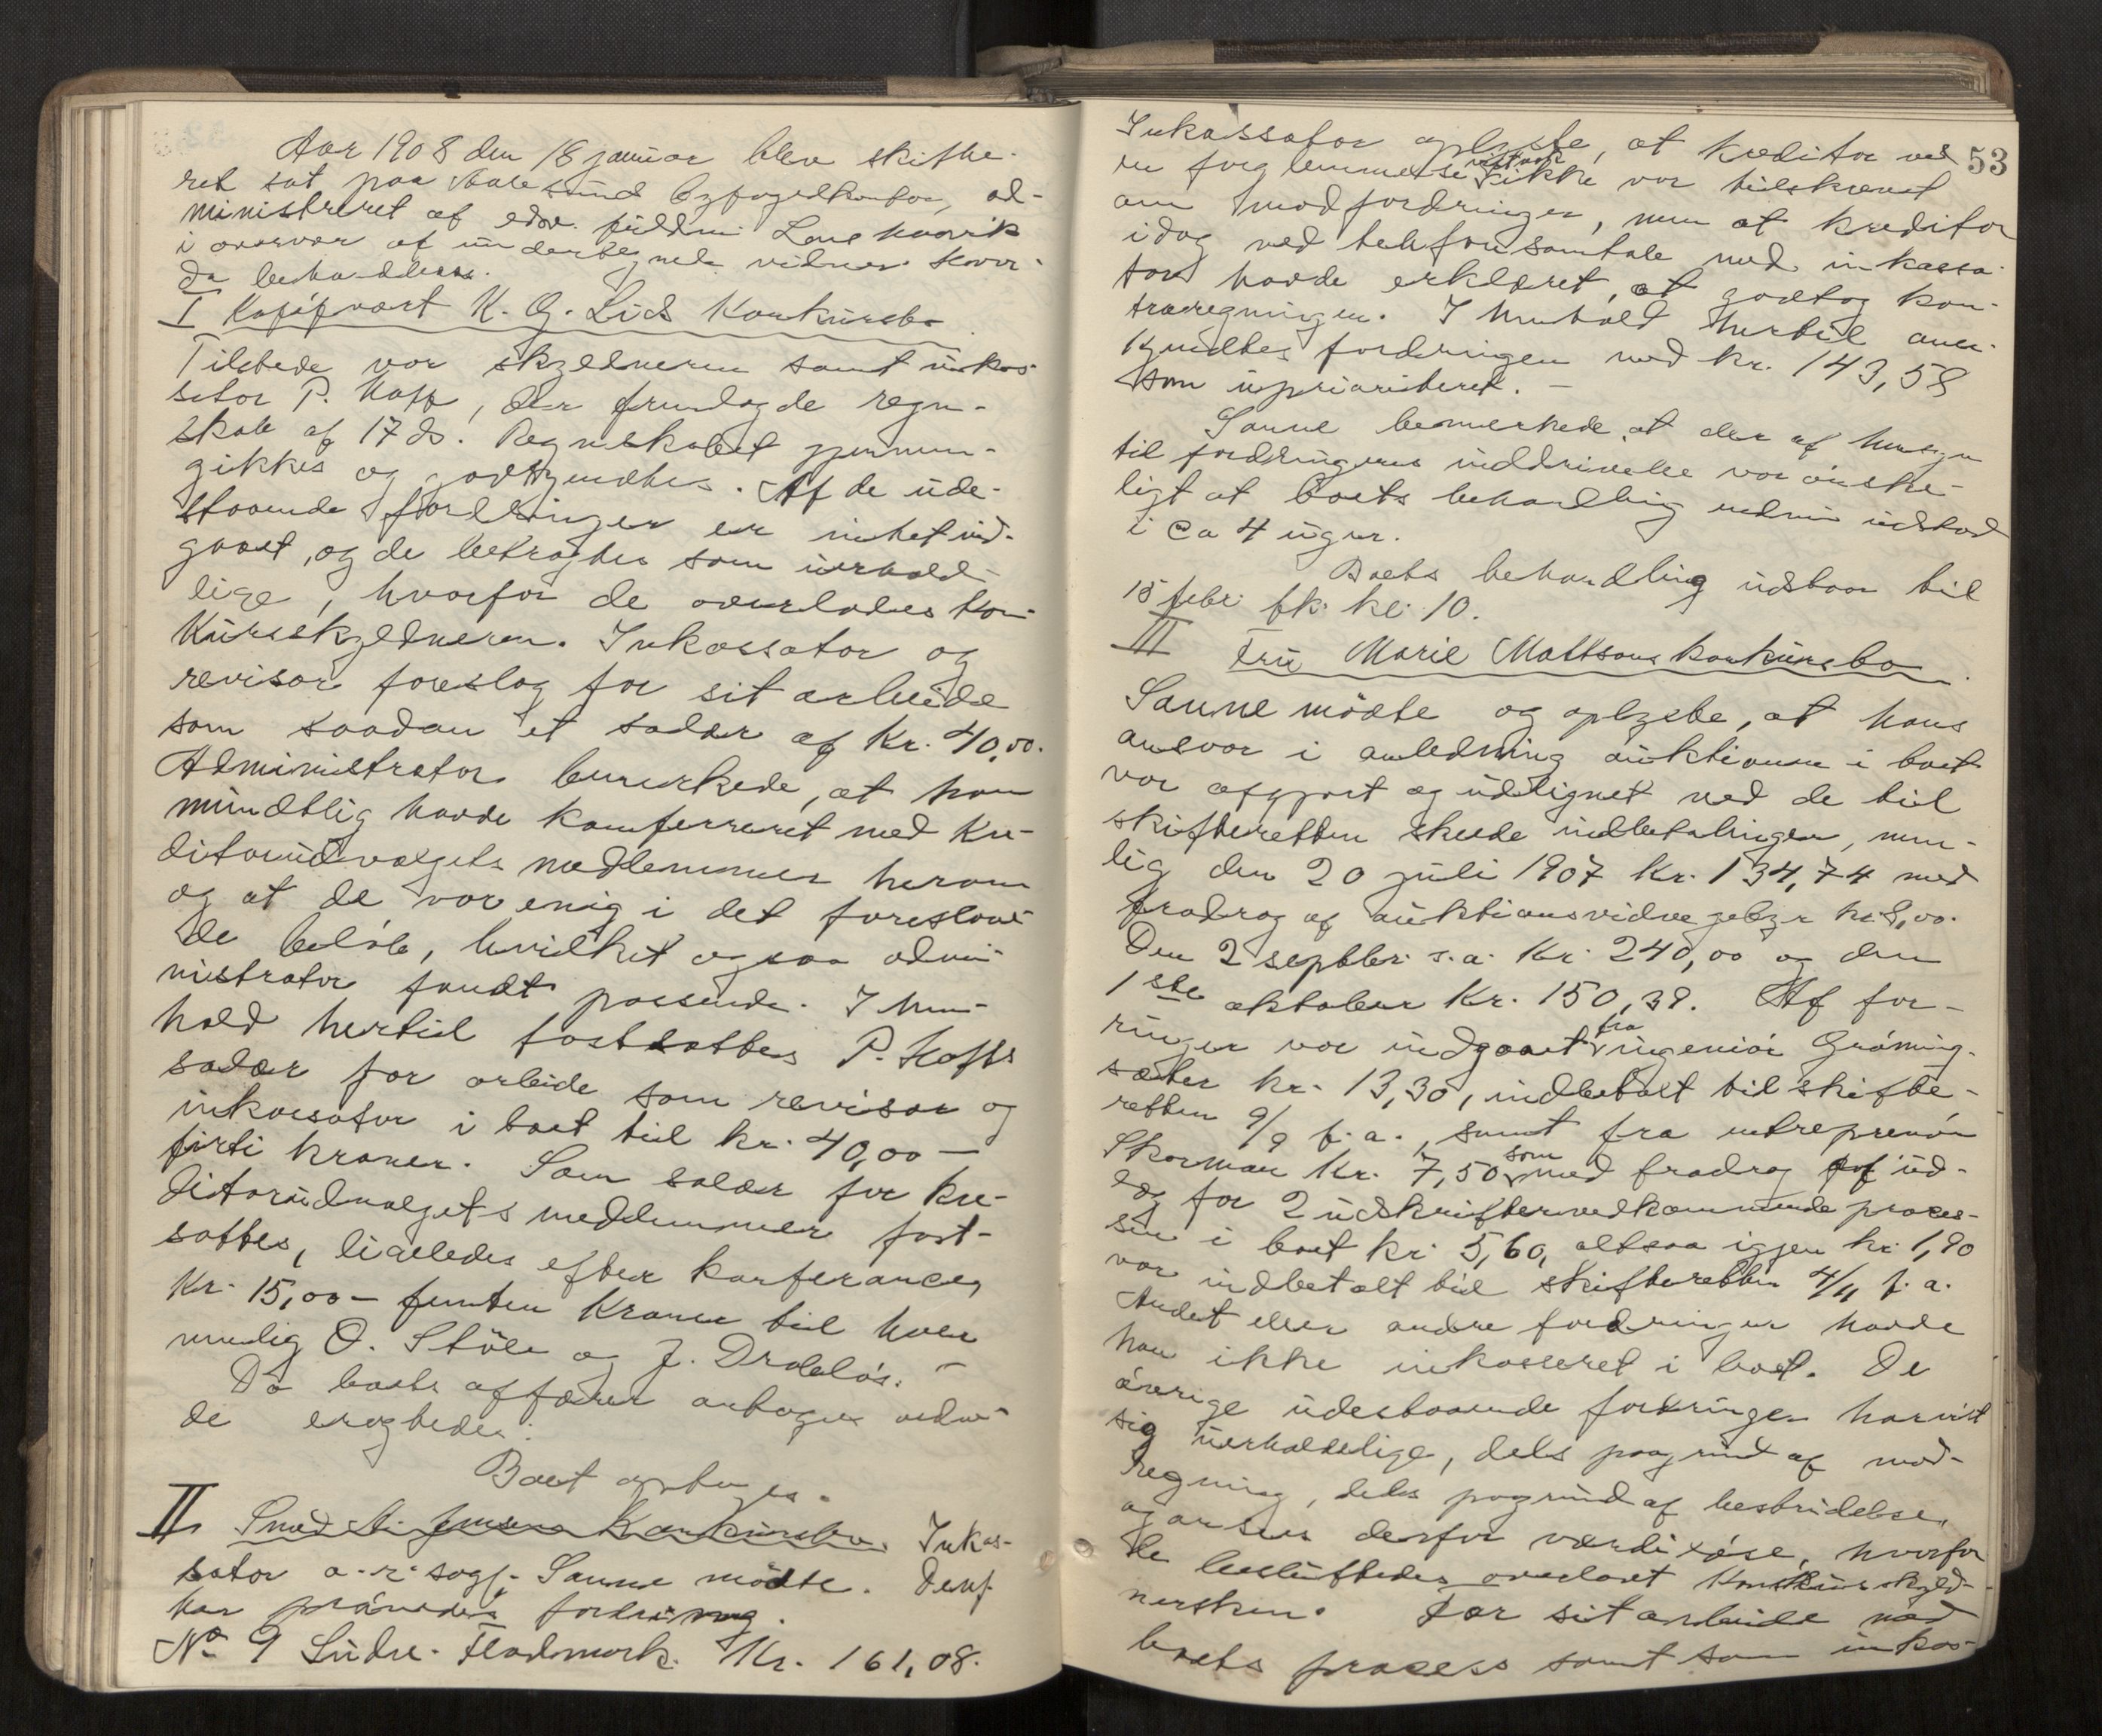 Aar 1908 den 18 januar blev skifte-
ret sat paa Aalesund byfogedkontor, ad-
ministreret af edsv. fuldm. Langhaavik
i overvær af undertegnede vidner. Hvor-
da behandledes.
I Kjøpmand K. G. Lids Konkursbo
Tilstede var skyldneren samt inkas-
sator P. Hoff, der fremlagde regn-
skab af 17 ds. Regnskabet gjennem-
gikkes og godkjendtes. Af de ude-
staaende fordringer er intet ind-
gaaet, og de betragtes som uerhold-
lige, hvorfor de overlades kon-
kursskyldneren. Inkassator og
revisor foreslog for sit arbeide
som saadan et salær af Kr. 40,00.
Administrator bemerkede, at han
mundtlig havde konfereret med Kre-
ditorudvalgets medlemmer herom
og at de var enig i det foreslaae-
de beløb, hvilket ogsaa admi-
nistrator fandt passende. I hen-
hold hertil fastsattes P. Hoffs
salær for arbeide som revisor og
inkassator i boet til kr. 40,00 —
firti kroner. Som salær for kre-
ditorudvalgets medlemmer fast-
sattes, ligeledes efter konferance,
Kr. 15,00 – femten Kroner til hver
nemlig O. Støle og J. Drabløs. –
Da boets affærer antages vedre-
de erogtedes:
Boet optages.
II. Smed Jensens Konkursbo. Inkas-
sator o.r.sagf. Sanne mødte. Denf
har prøvedes fordring.
No 9 Lüdre. Fladmark. Kr. 161,08.
53
Inkassator oplyste, at kreditor ved
en forglemmelse vistnok ikke var tilskrevet
om modfordringen, men at kreditor
idag ved telefonsamtale med inkassa-
tor havde erklæret, at godtog kon-
traregningen. I henhold hertil aner-
kjendtes fordringen med kr. 143,58
som uprioriteret. —
Sanne bemerkede, at der af hensyn
til fordringens inddrivelse var ønske-
ligt at boets behandling endnu udstod
i ca 4 uger.
Boets behandling udstaar til
15 febr. fk. kl. 10.
III Fru Marie Mattsons konkursbo.
Sanne mødte og oplyste, at hans
ansvar i anledning auktionen i boet
var opgjort og udlignet ved de til
skifteretten skede indbetalinger, nem-
lig den 20 juli 1907 Kr. 134,74 med
fradrag af auktionsvidnegebyr kr. 8,00.
Den 2 septbr. s.a. Kr. 240,00 og den
1ste oktober Kr. 150,39. Af for-
ringer var indgaaet fra ingeniør Grøning-
sæter kr. 13,30, indbetalt til skifte-
retten 9/9 f.a., samt fra entreprenør
Skarman Kr. 7,50 som med fradrag af ud-
læg for 2 udskrifter vedkommende proces-
sen i boet kr. 5,60, altsaa igjen kr. 1,90
var indbetalt til skifteretten 4/11 f.a.
Andet eller andre fordringer havde
han ikke inkasseret i boet. De
øvrige udestaaende fordringer har vist
sig uerholdelige, dels paagrund af mod-
regning, dels pagrund af bestridelse,
og ansees derfor værdiløse, hvorfor
de besluttedes overladt Konkursskyld-
nersken. For sit arbeide med
boets process samt som inkas-